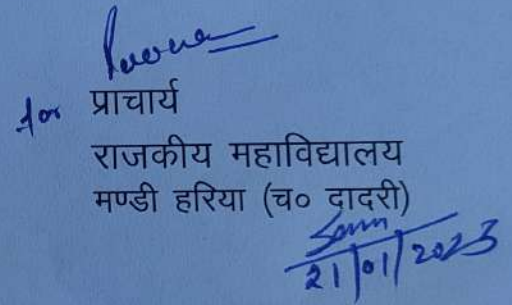 for प्राचार्य
राजकीय महाविद्यालय
मण्डी हरिया (च० दादरी)
21/01/2023